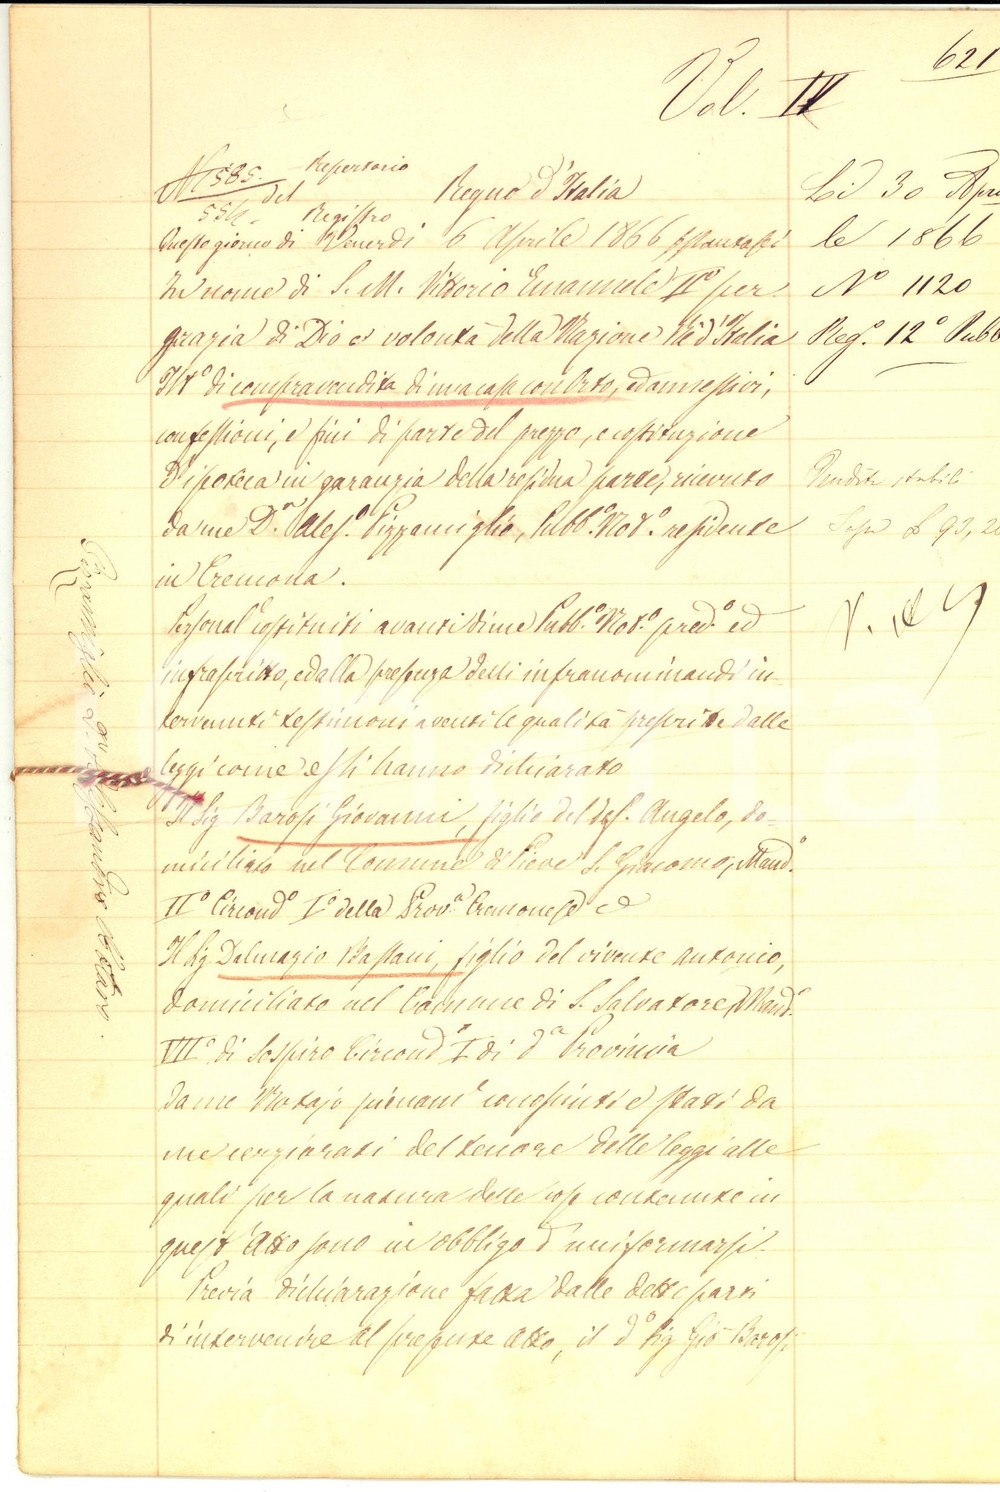 621
Vol. IV
N 1585. del Repertorio
554. Registro
Regno d'Italia
Questo giorno di Venerdì 6 Aprile 1866
In nome di S. M. Vittorio Emanuele II° per
grazia di Dio e volontà della Nazione Re d'Italia
di compravendita di una casa con Orto, ed annessivi,
confessioni, e fini di parte del prezzo, e costituzione
d'ipoteca in garanzia della residua parte, ricevuto
da me D.r Aless.o Pizzamiglio, Pubb.o Not.o residente
in Cremona.
Personal.e costituiti avanti di me Pubb.o Not.o pred.o ed
infrascritto, ed alla presenza delli infranominandi in-
tervenuti testimoni aventi le qualità prescritte dalle
leggi come essi hanno dichiarato
Il Sig Barosi Giovanni, figlio del Angelo, do-
miciliato nel Comune di Pieve S. Giacomo, Mand.o
II° Circond.o I° della Prov.a Cremonese ed
Il Sig Dalmazio Bassani, figlio del vivente Antonio,
domiciliato nel Comune di S. Salvatore, Mand.o
VII° di Sospiro Circond.o I di d.a Provincia
da me Notajo pienam.e conosciuti e stati da
me cerziorati del tenore delle leggi alle
quali per la natura delle cose contenute in
quest'Atto sono in obbligo d'uniformarsi.
Previa dichiarazione fatta dalle dette parti
di intervenire al presente Atto, il d.o Sig Gio Barosi
Li 30 Apri
le 1866
N° 1120
Reg.o 12° Pubb
Vendite stabili
£ 93, 20
Pizzamiglio D.r Alessandro Notaro.